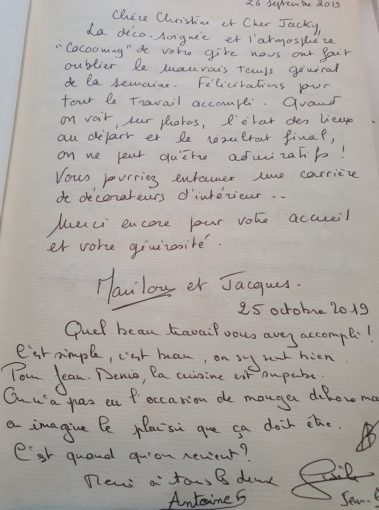 26 septembre 2019
Chère Christine et Cher Jacky,
La déco. soignée et l'atmosphère
"Cocooning" de votre gîte nous ont fait
oublier le mauvais temps général
de la semaine. Félicitations pour
tout le travail accompli. Quand
on voit, sur photos, l'état des lieux
au départ et le résultat final,
on ne peut qu'être admiratifs !
Vous pourriez entamer une carrière
de décorateurs d'intérieur ..
Merci encore pour votre accueil
et votre générosité.
Marilou et Jacques.
25 octobre 2019
Quel beau travail vous avez accompli !
C'est simple, c'est beau, on s'y sent bien
Pour Jean-Denis, la cuisine est superbe.
On n'a pas eu l'occasion de manger dehors ma
on imagine le plaisir que ça doit être.
C'est quand qu'on revient ?
Merci à tous les deux
Antoine G Jean-